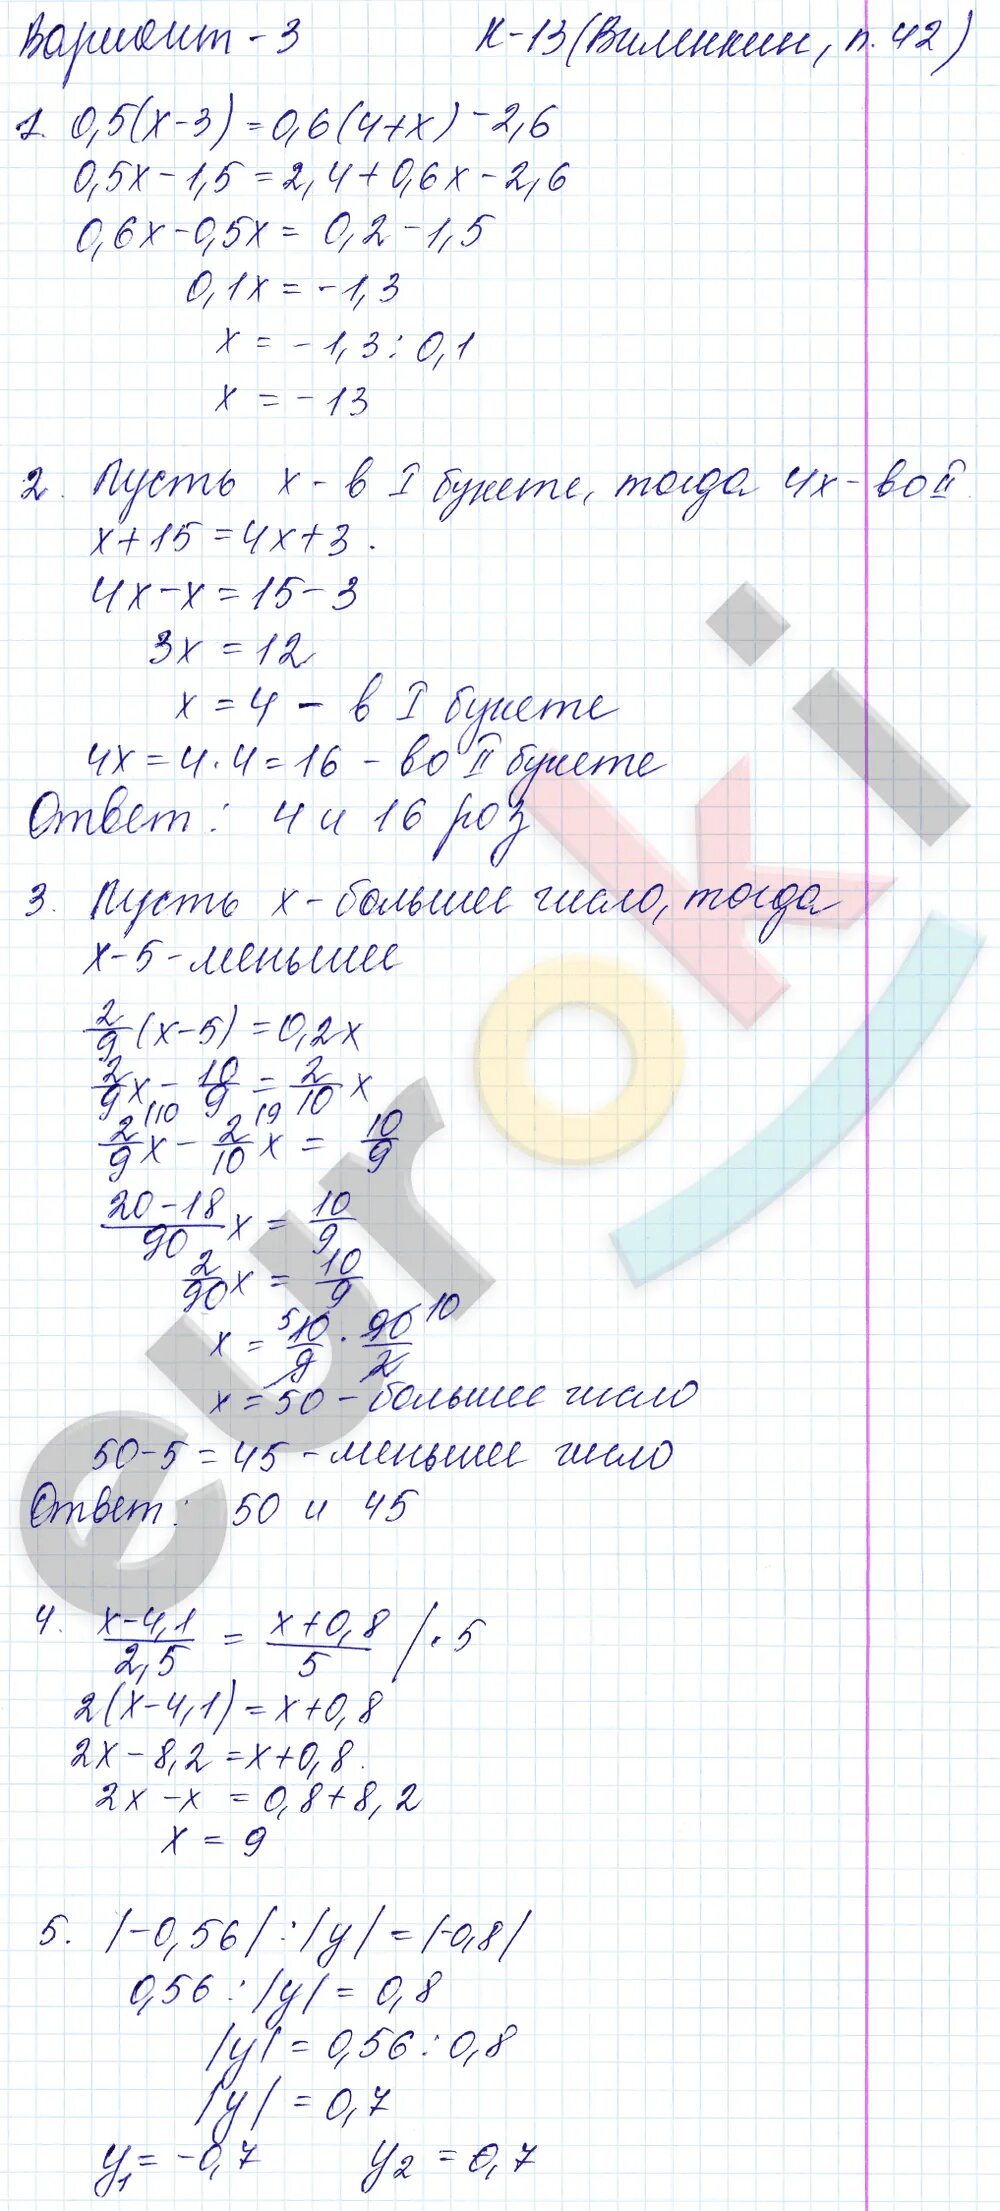 Вариант-3 К-13(Виленкин, п.42)
1. 0,5(x-3)=0,6(4+x)-2,6
0,5x-1,5=2,4+0,6x-2,6
0,6x-0,5x= 0,2-1,5
0,1x=-1,3
x = -1,3:0,1
x = -13
2. Пусть x - в I букете, тогда 4x - во II.
x+15=4x+3.
4x-x=15-3
3x=12
x=4 - в I букете
4x=4·4=16 - во II букете
Ответ: 4 и 16 роз
3. Пусть x-большее число, тогда
x-5-меньшее
2/9(x-5)=0,2x
2/9x - 10/9 = 2/10 x
2/9|10 x - 2/10|9 x = 10/9
20-18/90 x = 10/9
2/90 x = 10/9
x = 5 10/9 · 90/2 10
x=50 - большее число
50-5=45-меньшее число
Ответ: 50 и 45
4. x-4,1/2,5 = x+0,8/5 |·5
2(x-4,1)=x+0,8
2x-8,2=x+0,8.
2x-x = 0,8+8,2
x = 9
5. |-0,56|:|y|=|-0,8|
0,56:|y|= 0,8
|y|=0,56:0,8
|y|=0,7
y1=-0,7 y2=0,7
euroki